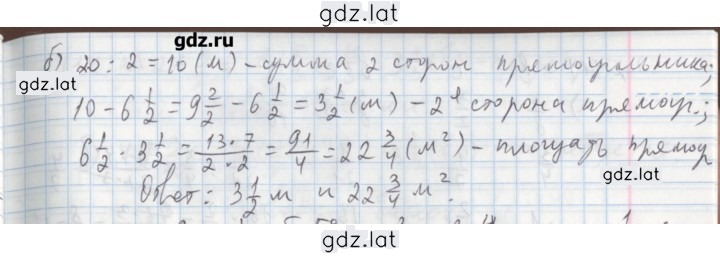 gdz.lat
gdz.lat
б) 20 : 2 = 10 (м) - сумма 2 сторон прямоугольника;
10 - 6 1/2 = 9 2/2 - 6 1/2 = 3 1/2 (м) - 2я сторона прямоуг.;
6 1/2 · 3 1/2 = 13 · 7 / 2 · 2 = 91/4 = 22 3/4 (м²) - площадь прямоуг
Ответ: 3 1/2 м и 22 3/4 м².
gdz.lat
gdz.lat
gdz.lat